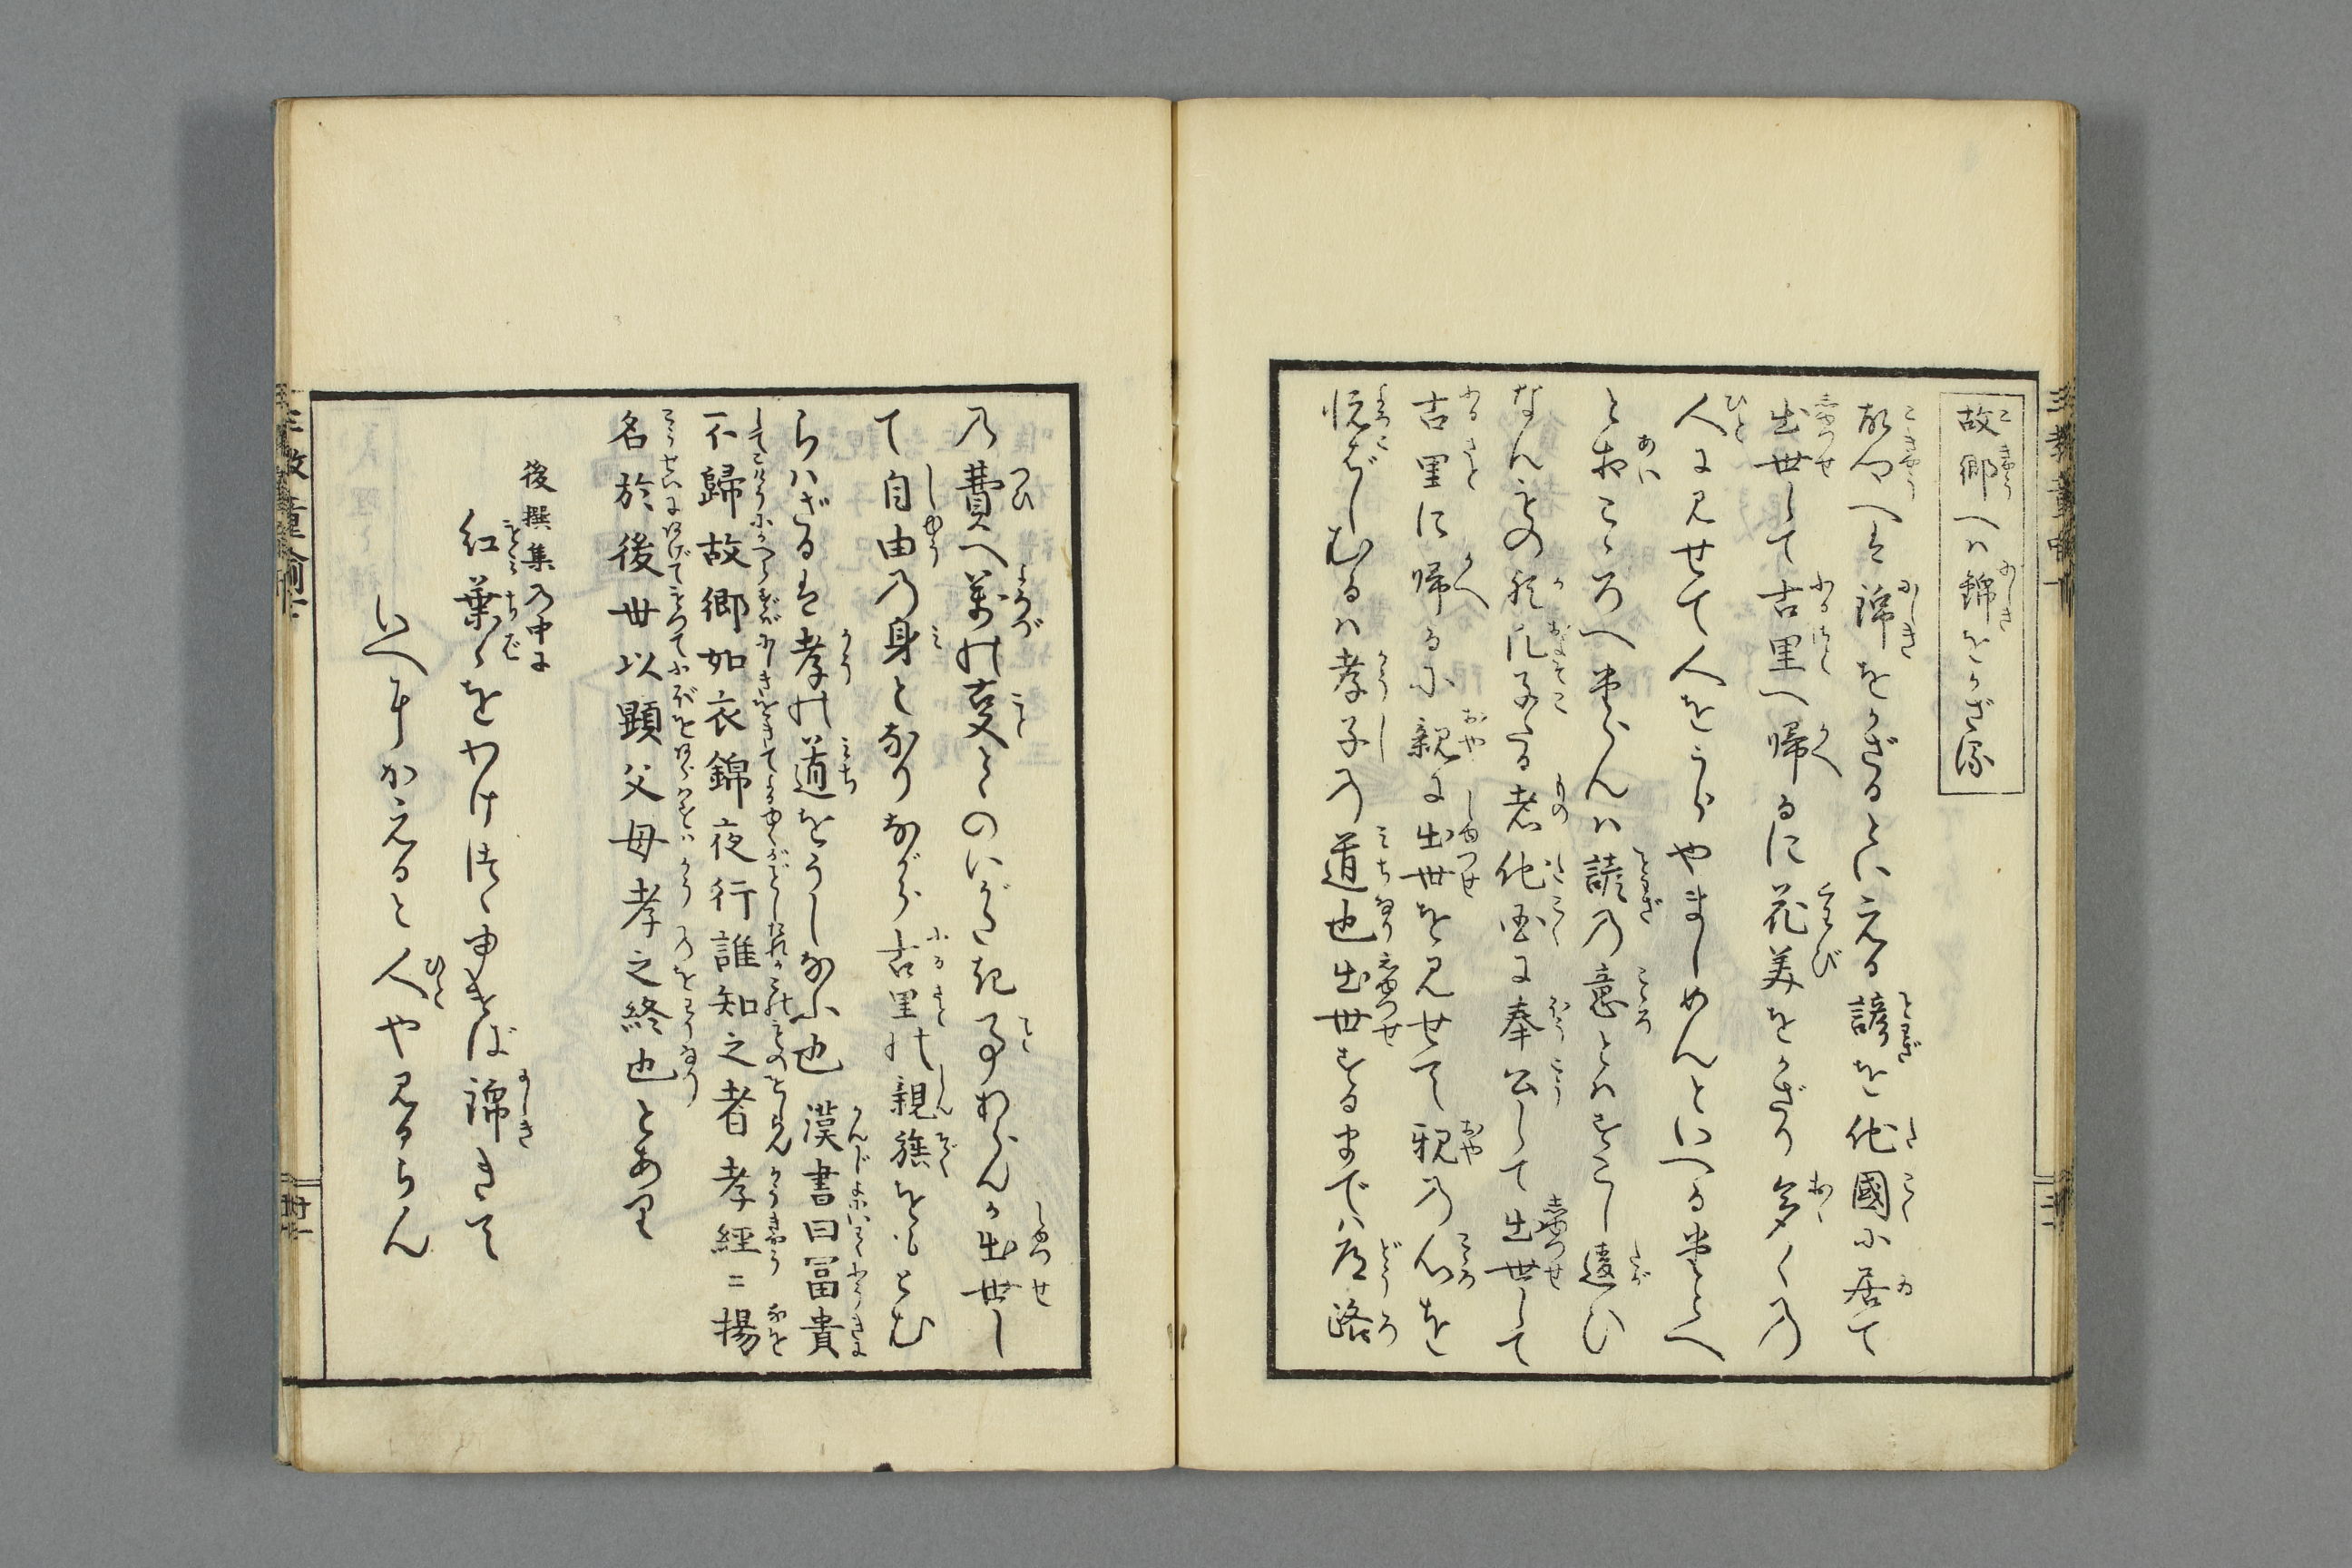 故郷へハ錦をかざる
故郷へは錦をかざるといえる諺を他國に居て
出世して古里へ帰るに花美をかざり多くの
人に見せて人をうらやましめんといへる
とおこゝろへ ハ諺の意とハすこし違ひ
なんその 子たる者他国に奉公して出世して
古里に帰るに親に出世を見せて親の心を
悦ばしむるハ孝子の道也出世するまでハ道路
の費へ萬の支とゝのいがたき事あらんが出世し
て自由の身となりながら古里の親族をもとむ
らハざるは孝の道をうしなふ也 漢書曰冨貴
不歸故郷如衣錦夜行誰知之者孝經ニ揚
名於後世以顕父母孝之終也とあり
後撰集の中に
紅葉々をわけつゝゆけば錦きて
いへにかえると人や見るらん
三教童喩
卅一